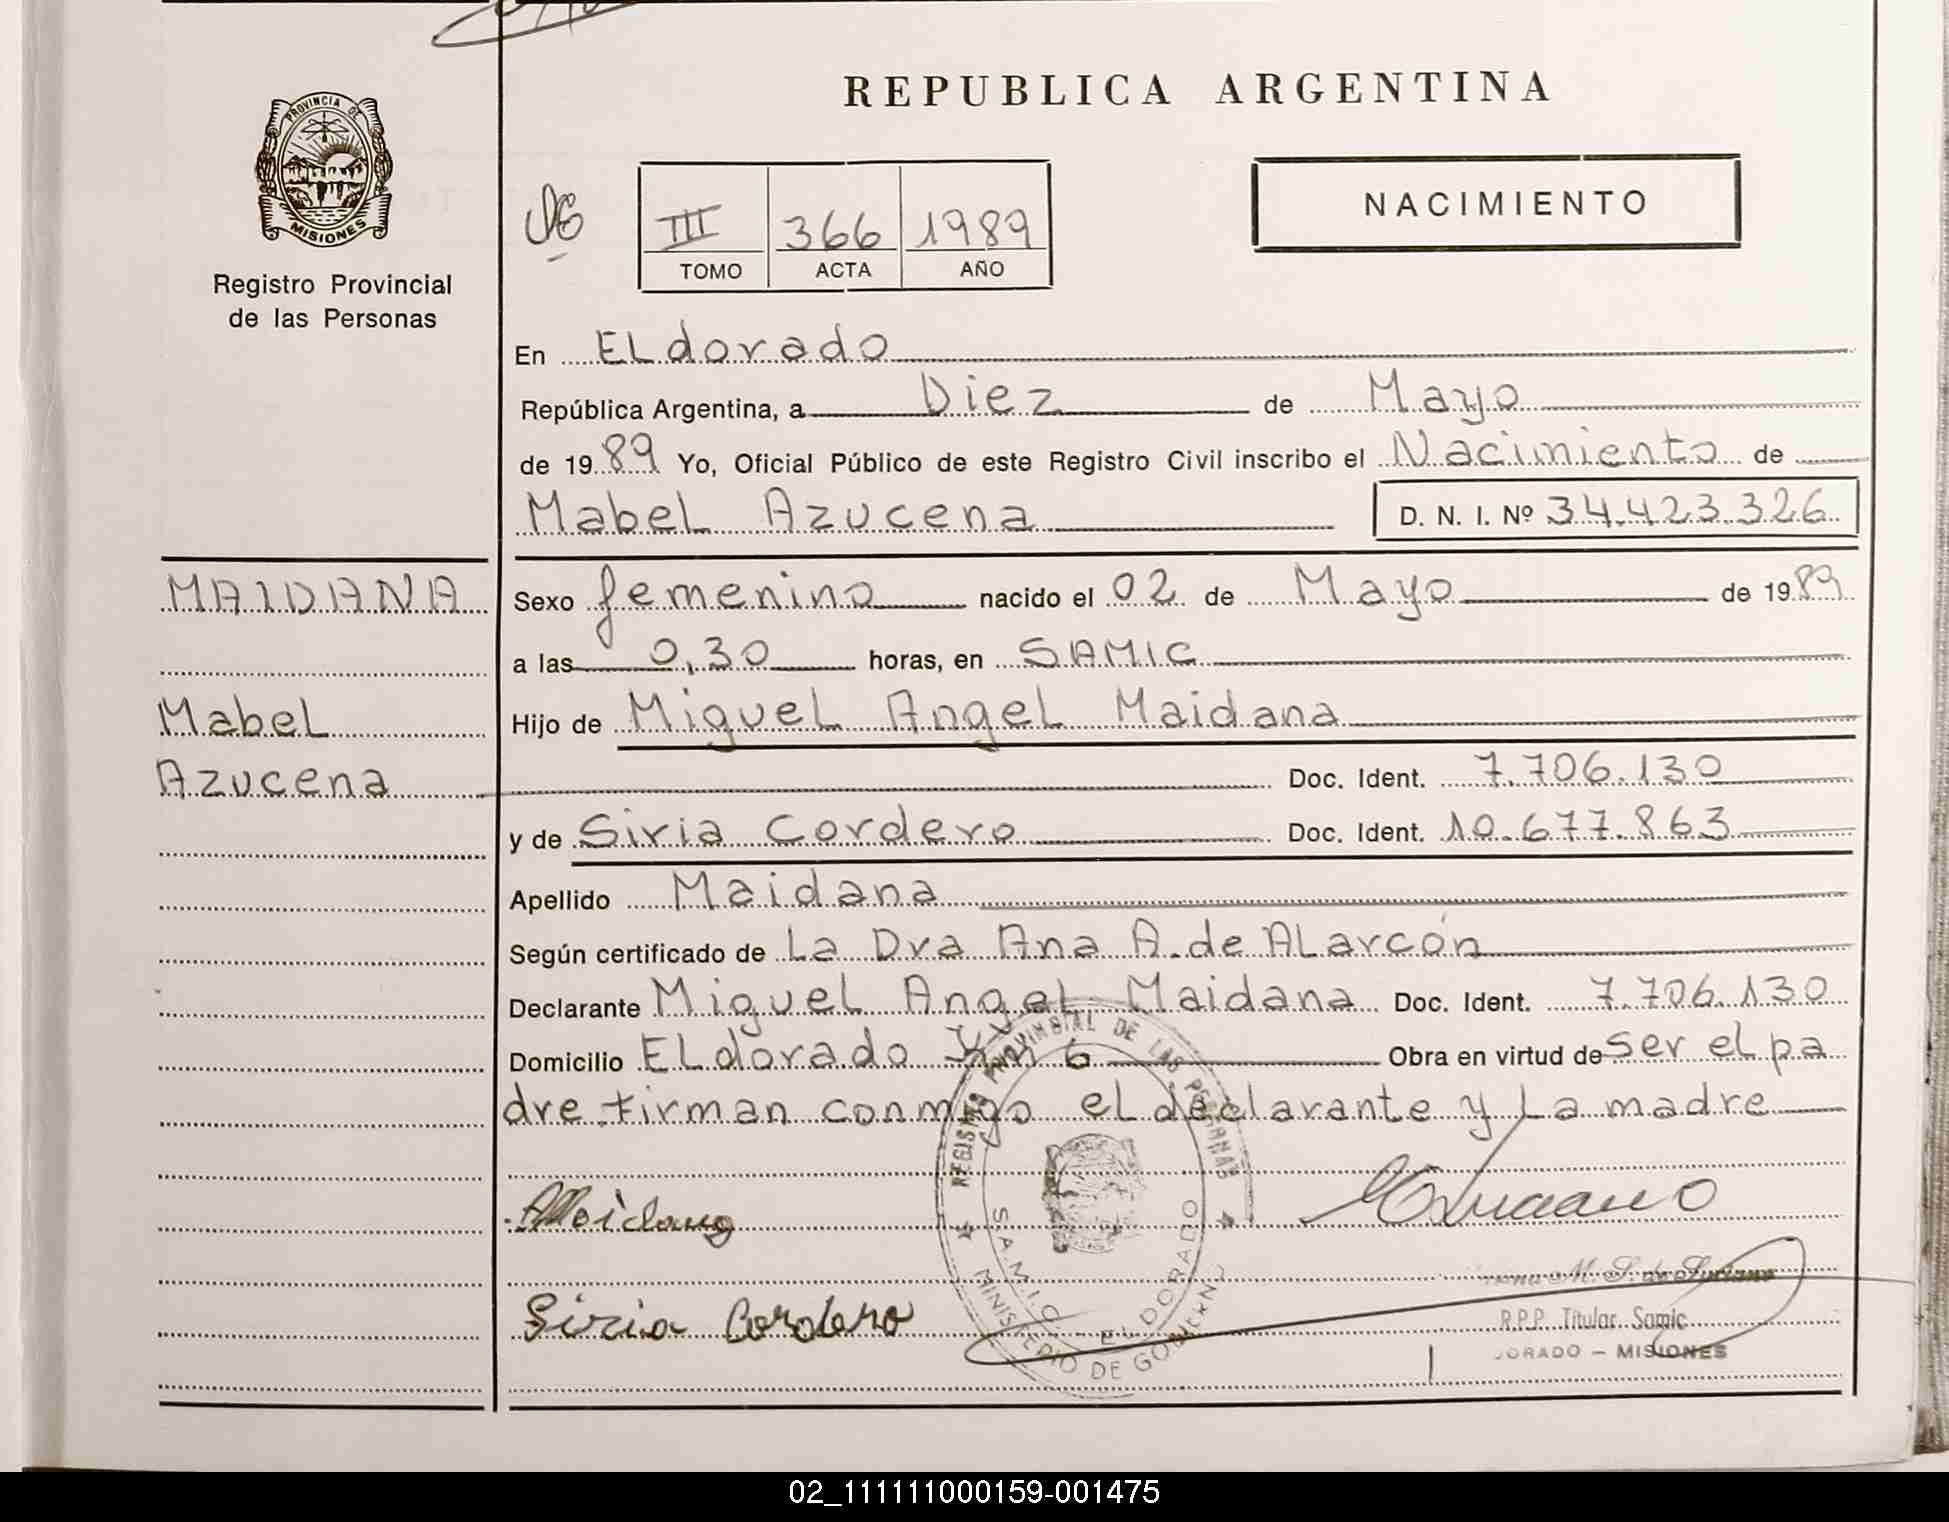 REPUBLICA ARGENTINA
PROVINCIA DE
MISIONES
Registro Provincial
de las Personas
NACIMIENTO
III 366 1989
TOMO ACTA AÑO
En ELdorado
República Argentina, a Diez de Mayo
de 1989 Yo, Oficial Público de este Registro Civil inscribo el Nacimiento de
MabeL Azucena D. N. I. Nº 34.423.326
MAIDANA
MabeL
Azucena
Sexo femenino nacido el 02 de Mayo de 1989
a las 0,30 horas, en SAMIC
Hijo de MigueL AngeL Maidana
Doc. Ident. 7.706.130
y de Siria Cordero Doc. Ident. 10.677.863
Apellido Maidana
Según certificado de La Dra Ana A. de ALarcón
Declarante MigueL AngeL Maidana Doc. Ident. 7.706.130
Domicilio ELdorado Km 6 Obra en virtud de ser el pa
dre firman conmigo el declarante y La madre
REGISTRO PROVINCIAL DE LAS PERSONAS
S.A.M.I.C. - ELDORADO
MINISTERIO DE GOBIERNO
Maidana
Siria Cordero
M. S. de Luciano
R.P.P. Titular Samic
DORADO - MISIONES
02_111111000159-001475